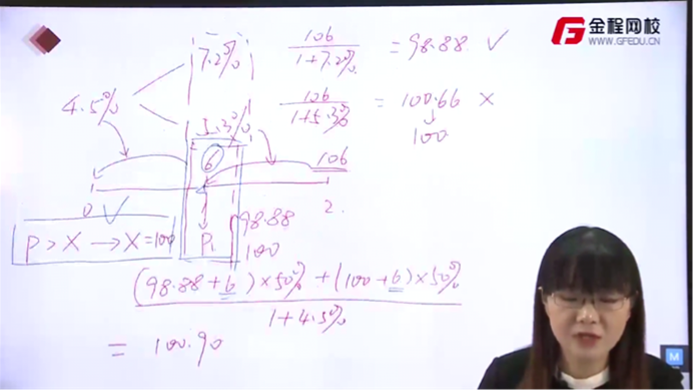 金程网校
WWW.GFEDU.CN
7.2%
106
1+7.2%
=98.88 ✓
4.5%
5.3%
106
1+5.3%
= 100.66 ×
100
6
106
0
2.
P > X → X = 100
P₁
98.88
100
(98.88+6)×50% + (100+6)×50%
1+4.5%
= 100.90
M